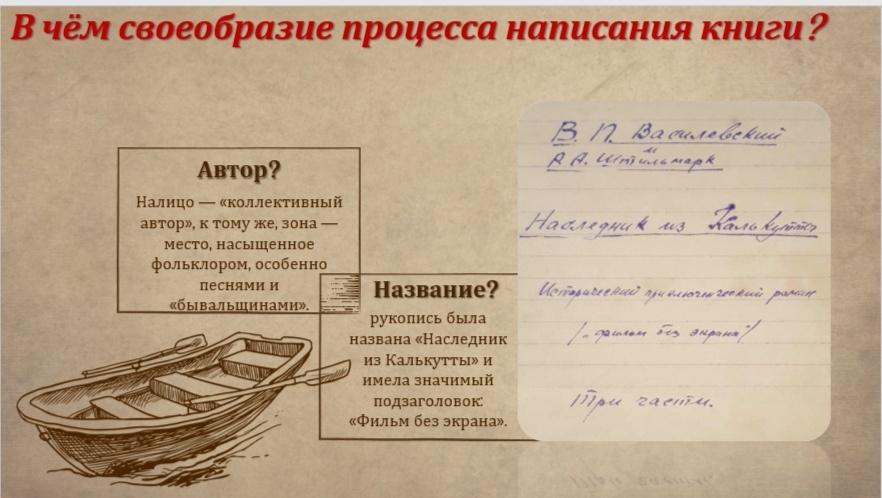 В чём своеобразие процесса написания книги?
Автор?
Налицо — «коллективный
автор», к тому же, зона —
место, насыщенное
фольклором, особенно
песнями и
«бывальщинами».
Название?
рукопись была
названа «Наследник
из Калькутты» и
имела значимый
подзаголовок:
«Фильм без экрана».
В. П. Василевский
и
Р. А. Штильмарк
Наследник из Калькутты
Исторический приключенческий роман
/„фильм без экрана"/
Три части.